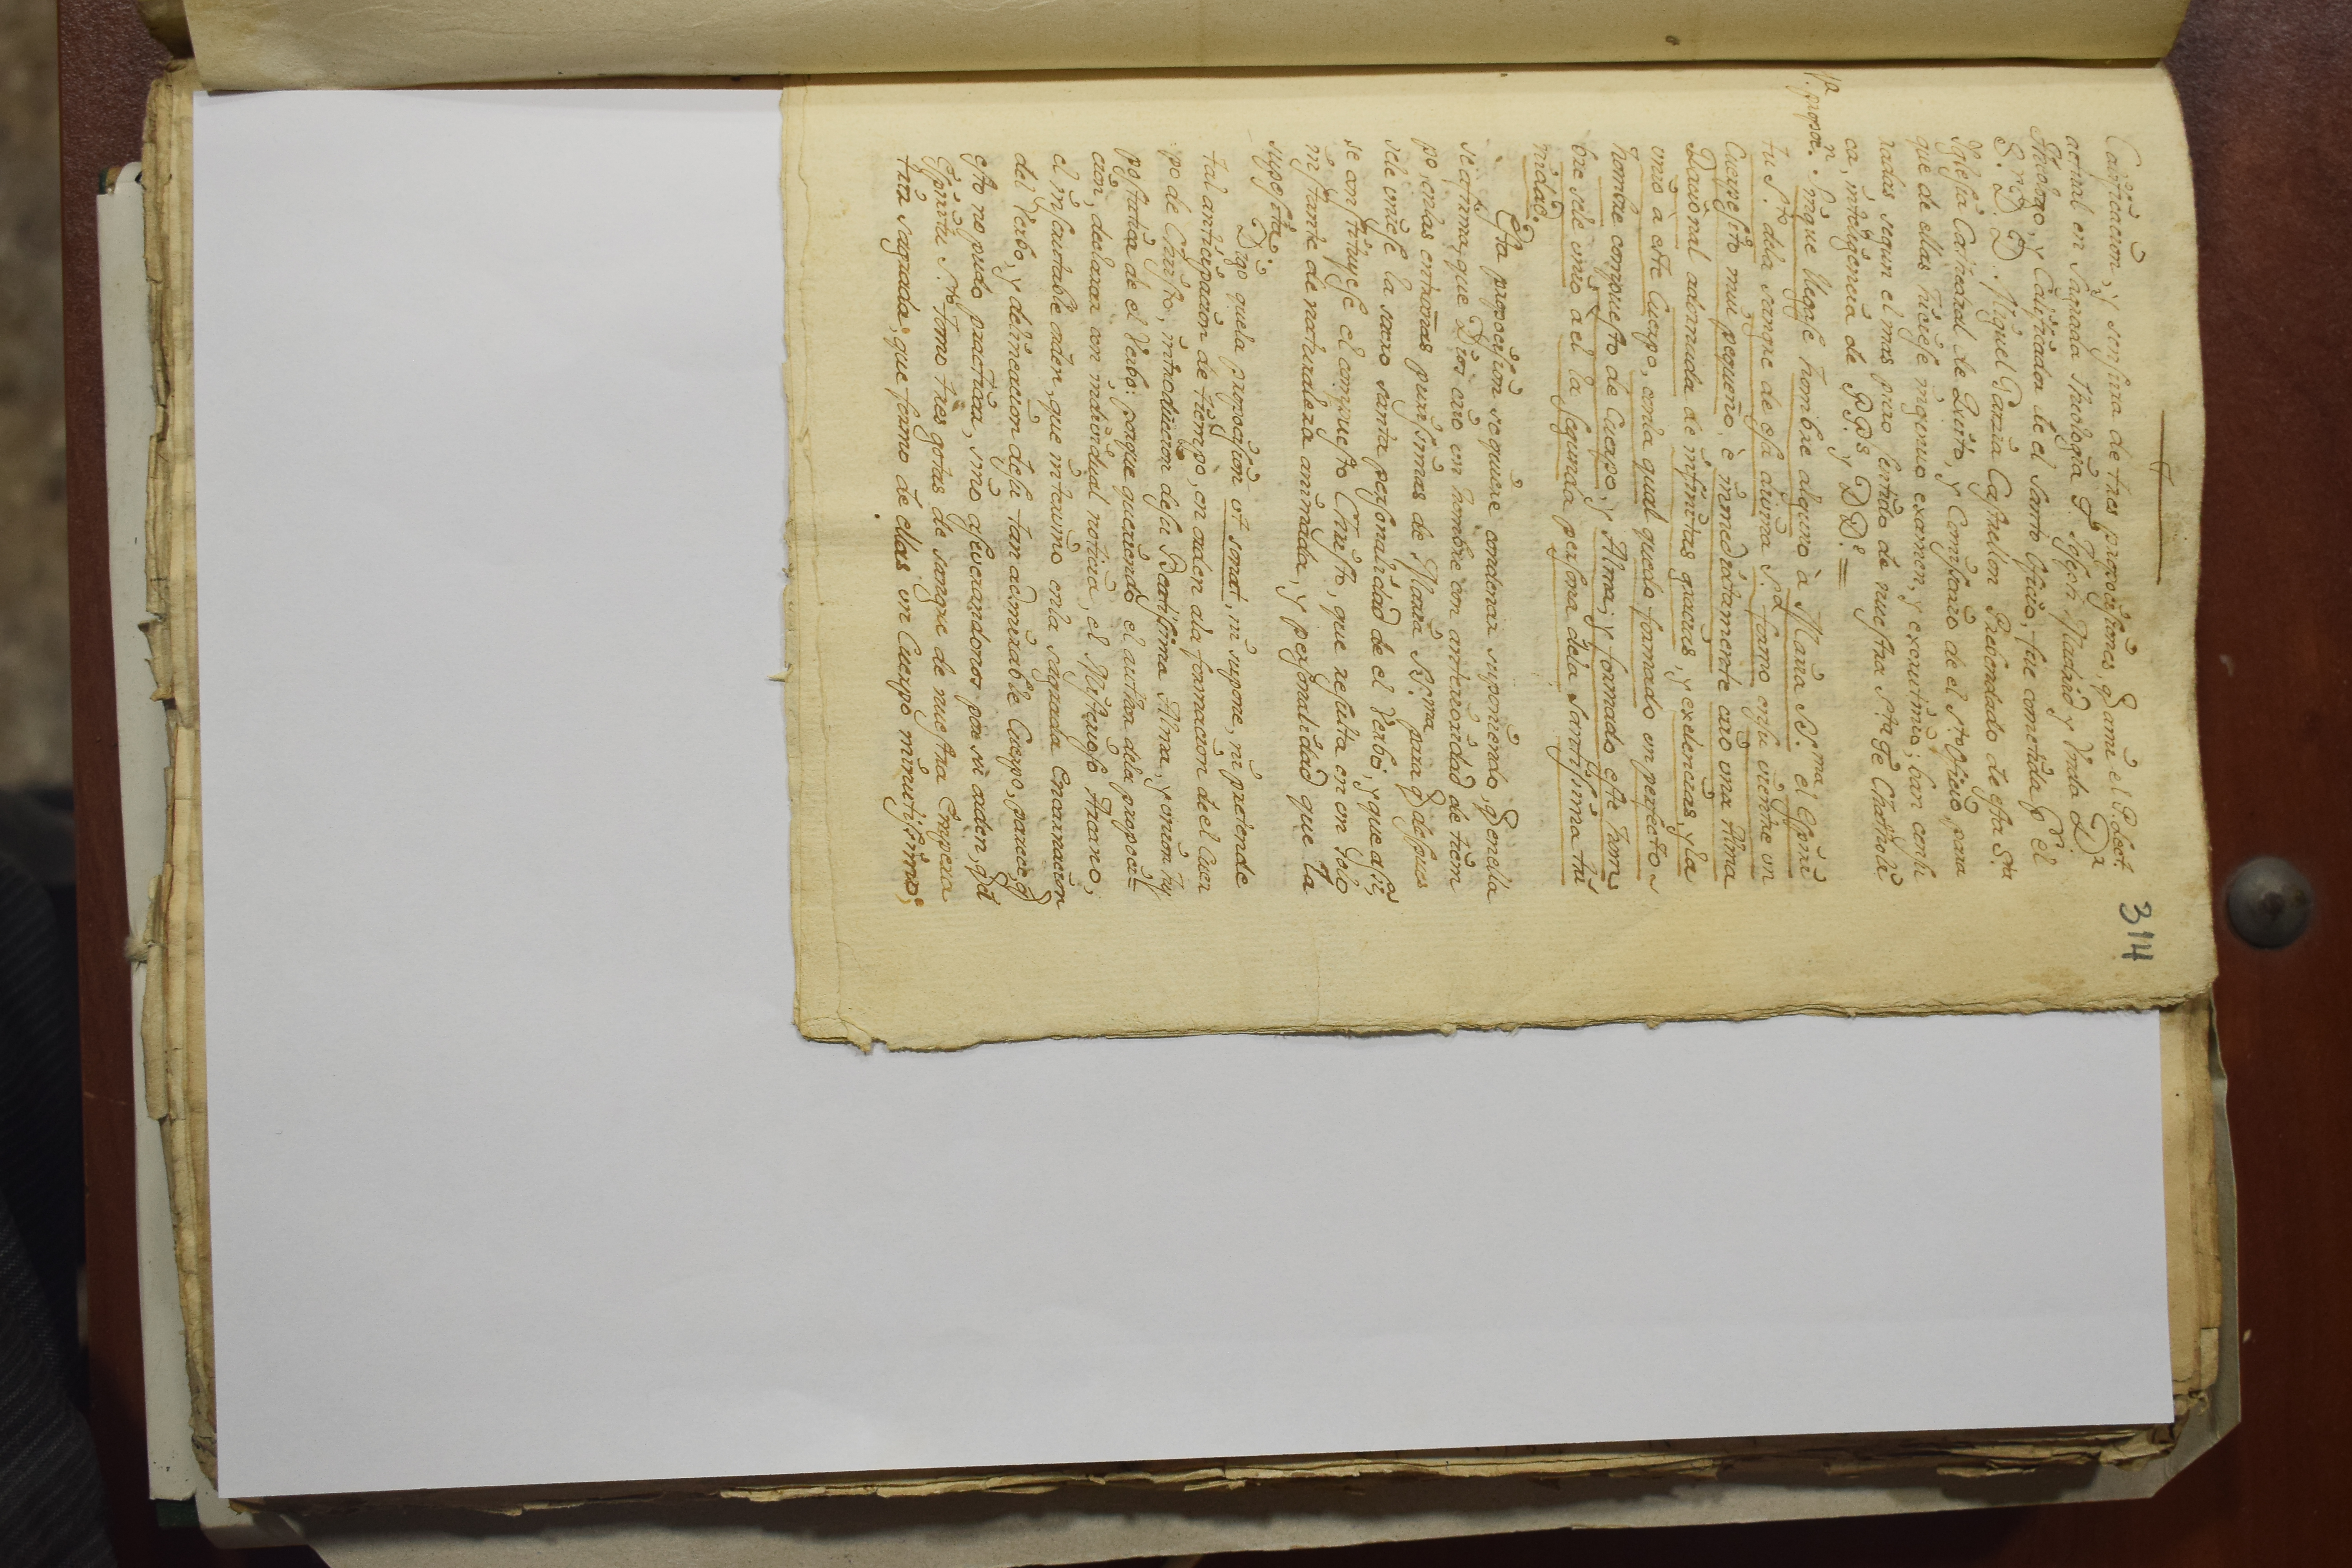 314
Calificacion, y sensura de tres proposisiones, q̃ ami el P. Lect.
actual en Sagrada Theologia F. Joseph Madaro y Pinda D.r
Theologo, y Calificador de el Santo Oficio, fue cometida p.r el
S. D. D. Miguel Garzia Castrellon Prebendado de esta S.ta
Iglesia Cathedral de Quito, y Comisario de el S.to Oficio, para
que de ellas hiciese ingenuo examen, y excrutinio; han censu
radas segun el mas puro sentido de nuestra S.ta Fè Catholi
ca, inteligencia de P.P.s y D.D.s =
1.a propo.n Sinque llegase hombre alguno à Maria SS.ma el Espiri
tu S.to dela sangre de esta divina S.ra formo ensu vientre un
Cuerpesito mui pequeño, è immediatamente crio una Alma
Racional adornada de infinitas gracias, y exelencias, y la
unio à este Cuerpo, conla qual quedo formado un perfecto
hombre compuesto de Cuerpo, y Alma; y formado este hom
bre sele unio a el la segunda persona dela Santissima Tri
nidad.
Esta proposision se quiere condenar suponiendo, q̃ en ella
se afirma, que Dios crio un hombre con anterioridad de tiem
po, enlas entrañas purissimas de Maria SS.ma para q̃ despues
sele uniese la sacro santa personalidad de el Verbo, y que asi
se constituyese el compuesto Christo, que resulta en un solo
instante de naturaleza animada, y personalidad que la
suposita.
Digo quela proposision ut sonat, ni supone, ni pretende
tal anticipacion de tiempo, en orden ala formacion de el Cuer
po de Christo, introduccion desu Beatissima Alma, y union hy
postatica de el Verbo: porque queriendo el autor dela proposi=
cion, declarar con individual noticia, el Misterioso Arcano,
el inscrutable orden, que intervino enla sagrada Encarnacion
del Verbo, y delineacion desu tan admirable Cuerpo, parece, q̃
esto no pudo practicar, sino aseverandonos por su orden, q̃ el
Espiritu S.to tomo tres gotas de sangre de nuestra Empera
triz Sagrada; que formo de ellas un Cuerpo minutissimo;